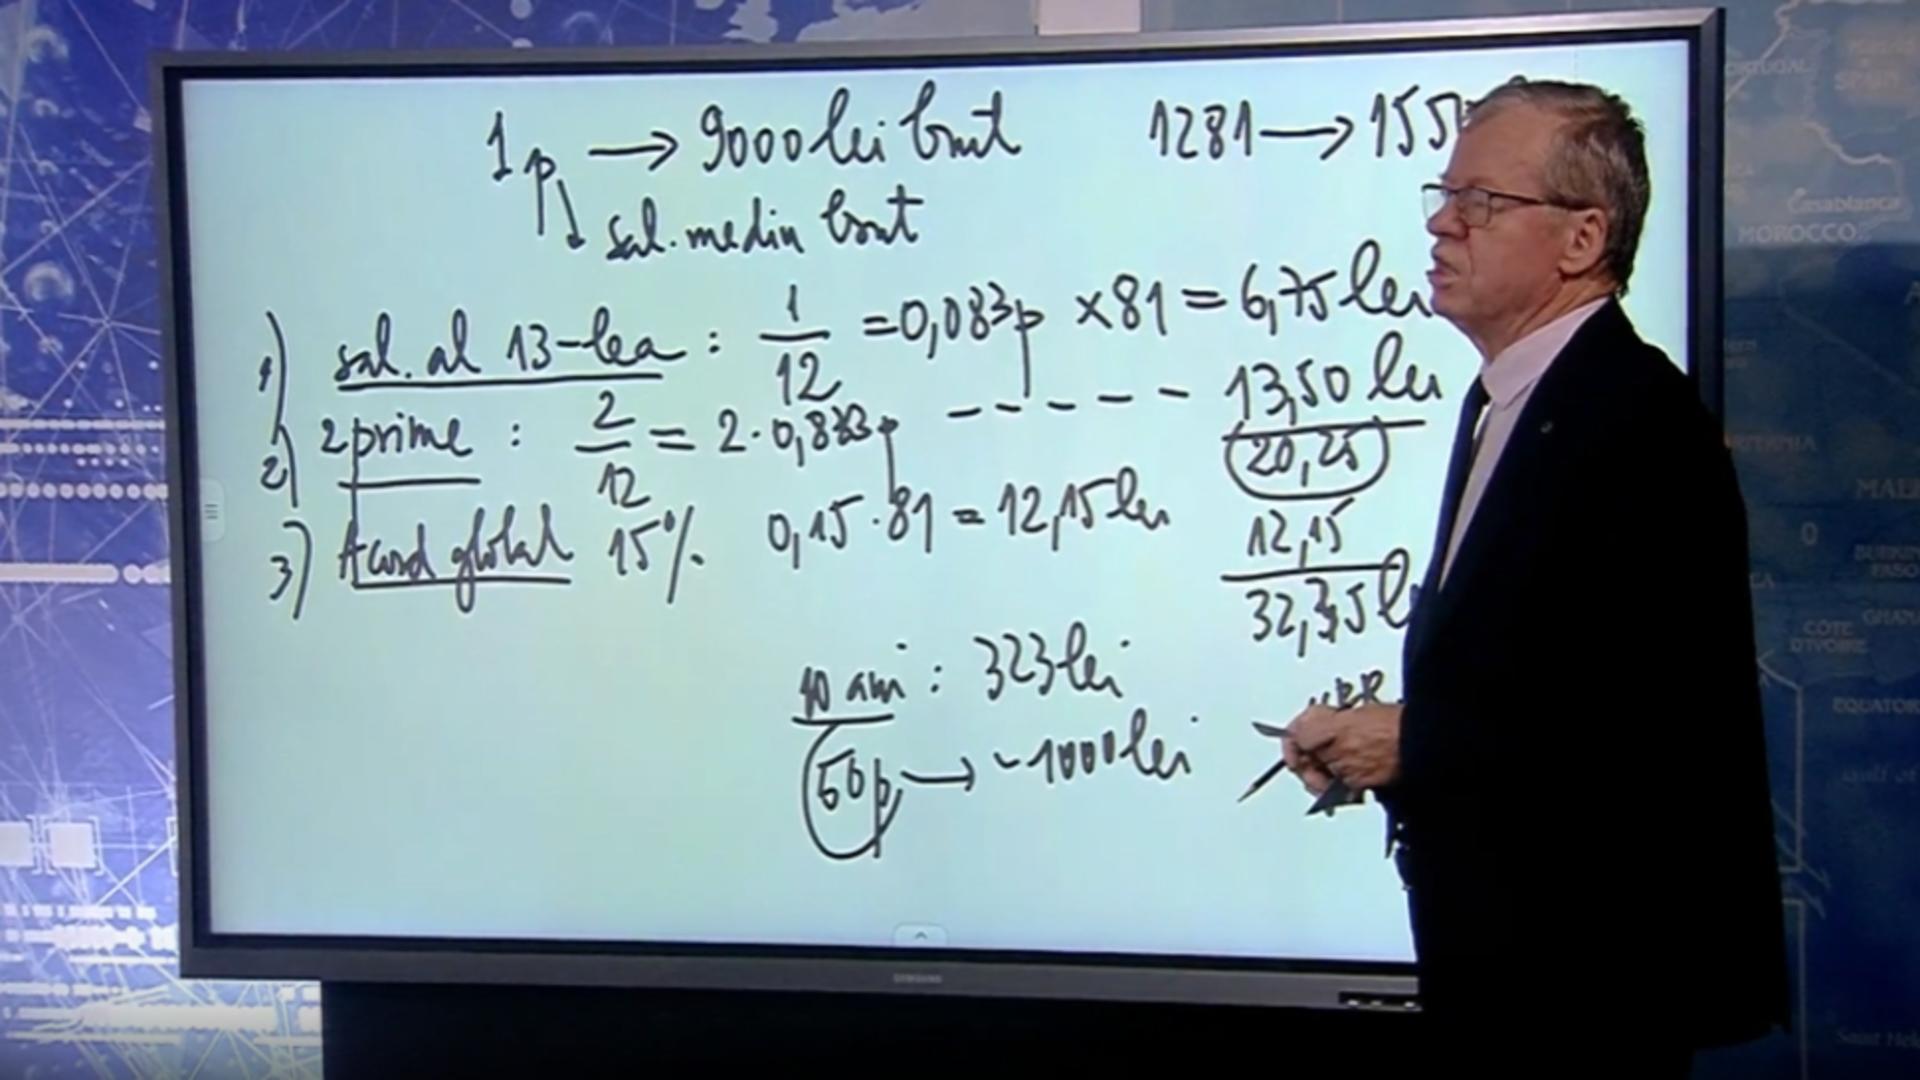 1p → 9000 lei brut
1281 → 155
sal. mediu brut
1) sal. al 13-lea : 1/12 = 0,083p × 81 = 6,75 lei
2) 2 prime : 2/12 = 2·0,833p ----- 13,50 lei
20,25
3) Acord global 15% 0,15·81 = 12,15 lei
12,15
32,35 l
10 ani : 323 lei
50p → ~1000 lei
SAMSUNG
PORTUGAL
SPAIN
Casablanca
MOROCCO
0
BURKINA
FASO
GHANA
CÔTE
D'IVOIRE
EQUATOR